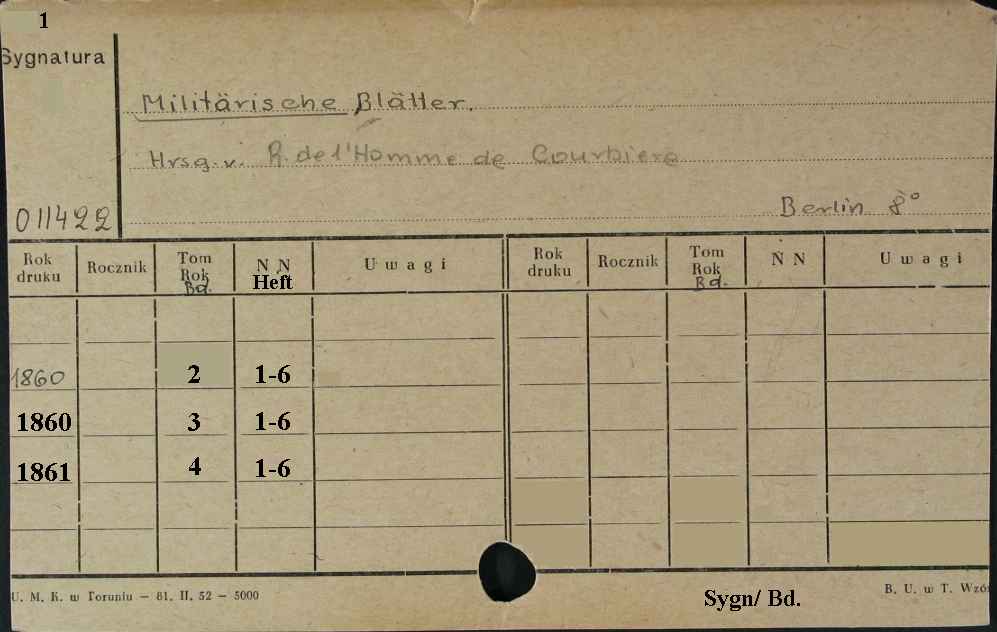 1
Sygnatura
Militärische Blätter.
Hrsg. v. R. de l'Homme de Courbiere
Berlin 8°
011422
Rok druku Rocznik Tom Rok Bd. N N Heft Uwagi Rok druku Rocznik Tom Rok Bd. N N Uwagi
1860 2 1-6
1860 3 1-6
1861 4 1-6
U. M. K. w Toruniu — 61. II. 52 — 5000
B. U. w T. Wzó
Sygn/ Bd.